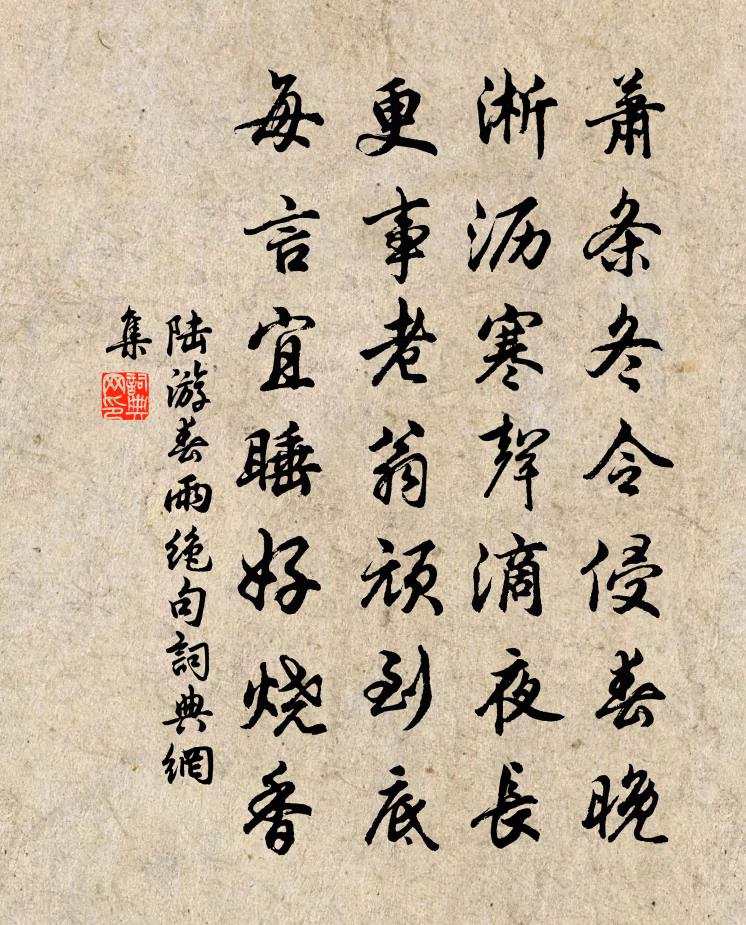 萧条冬令侵春晚
淅沥寒聲滴夜長
更事老翁顽到底
每言宜睡好烧香
陆游春雨绝句詞典網
集
詞典
网印